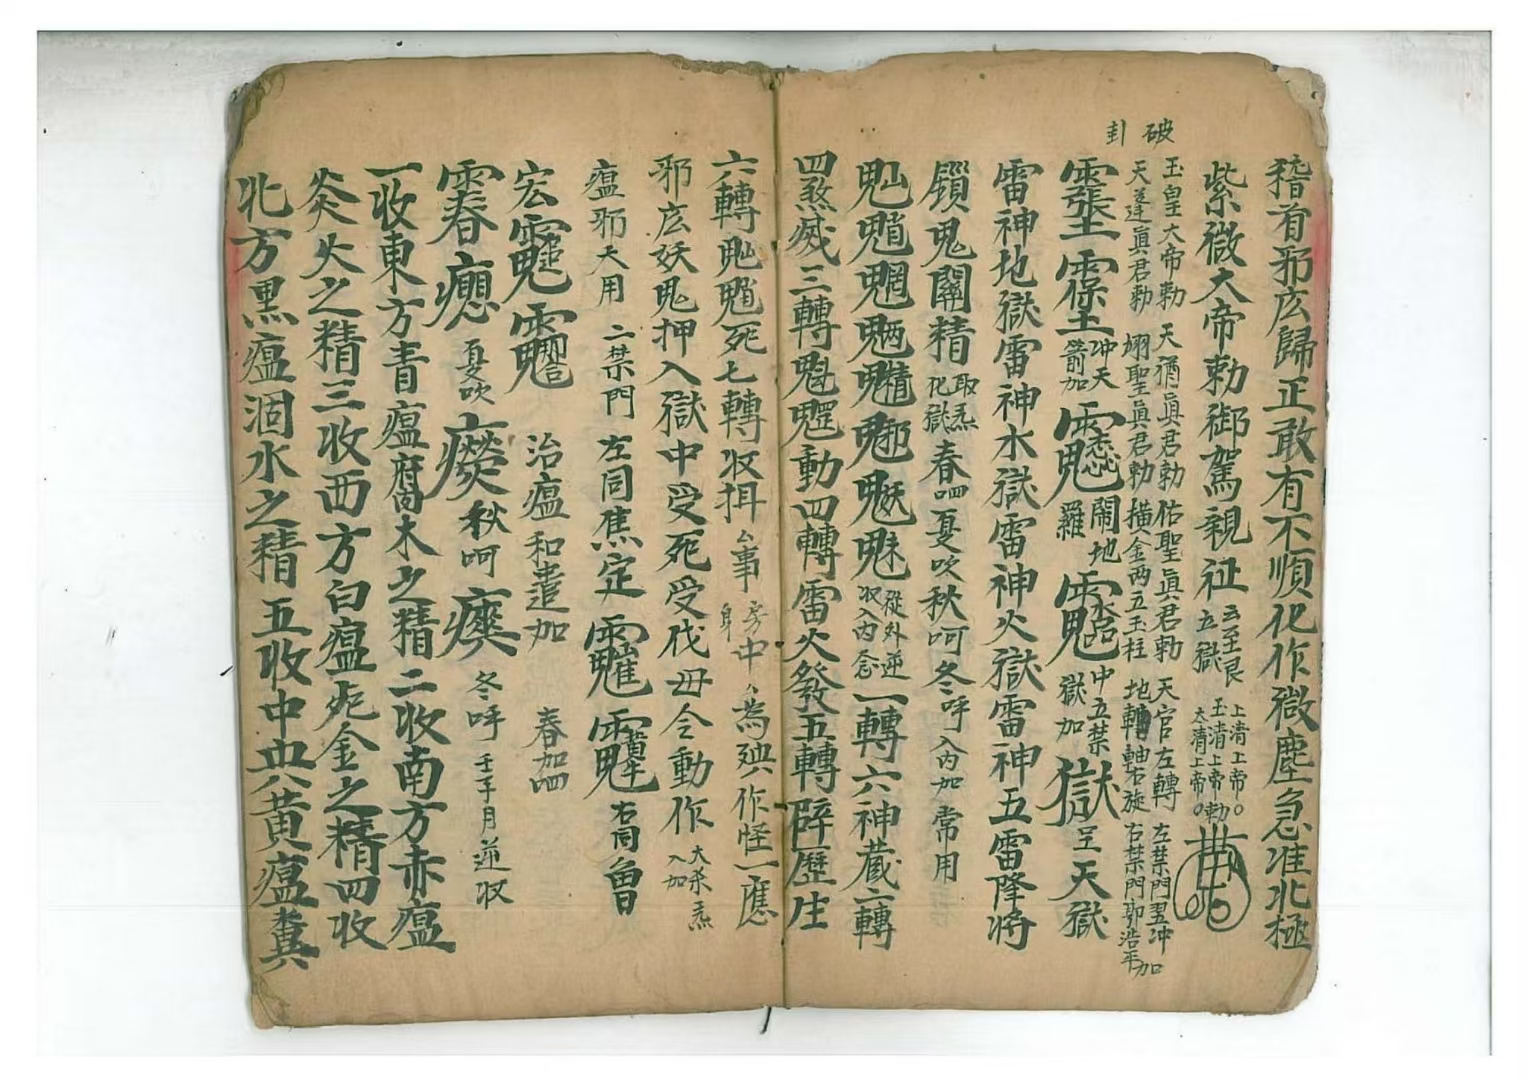 破
封
稽首邪広歸正敢有不順化作微塵急准北極
紫微大帝勅御駕親征
云至艮
立獄
上清上帝
玉清上帝勅
太清上帝
玉皇大帝勅 天猶眞君勅 佑聖眞君勅 天官左轉 左禁門 冲加
天蓬眞君勅 翊聖眞君勅 橫金两五玉柱 地轉軸右旋 右禁門郭浩平
冲天
箭加
鬧地
羅
中五禁
獄加
獄呈天獄
雷神地獄雷神水獄雷神火獄雷神五雷降将
鎖鬼關精
取炁
化獄
春呬夏吹秋呵冬呼入内加常用
從外逆
収入内念
一轉六神藏二轉
四煞滅三轉動四轉雷火發五轉辟歷生
六轉死七轉収
事
身中為殃作怪一應
邪広妖鬼押入獄中受死受伐毋令動作
大杀炁
入加
瘟邪天用二禁門左同焦定
右同魯
宏
治瘟和遣加
春加呬
夏吹
秋呵
冬呼
壬子月逆収
一收東方青瘟腐木之精二收南方赤瘟
炎火之精三收西方白瘟死金之精四收
北方黑瘟涸水之精五收中央黄瘟糞